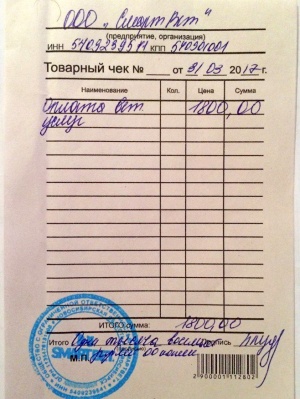 ООО "СмартВет"
(предприятие, организация)
ИНН КПП
Товарный чек № от 31 03 2017г.
Наименование Кол. Цена Сумма
Оплата вет 1800,00
услуг
ИТОГО сумма: 1800,00
Итого Одна тысяча восемьсот
рублей 00 копеек
М.П.
2 900001 112602